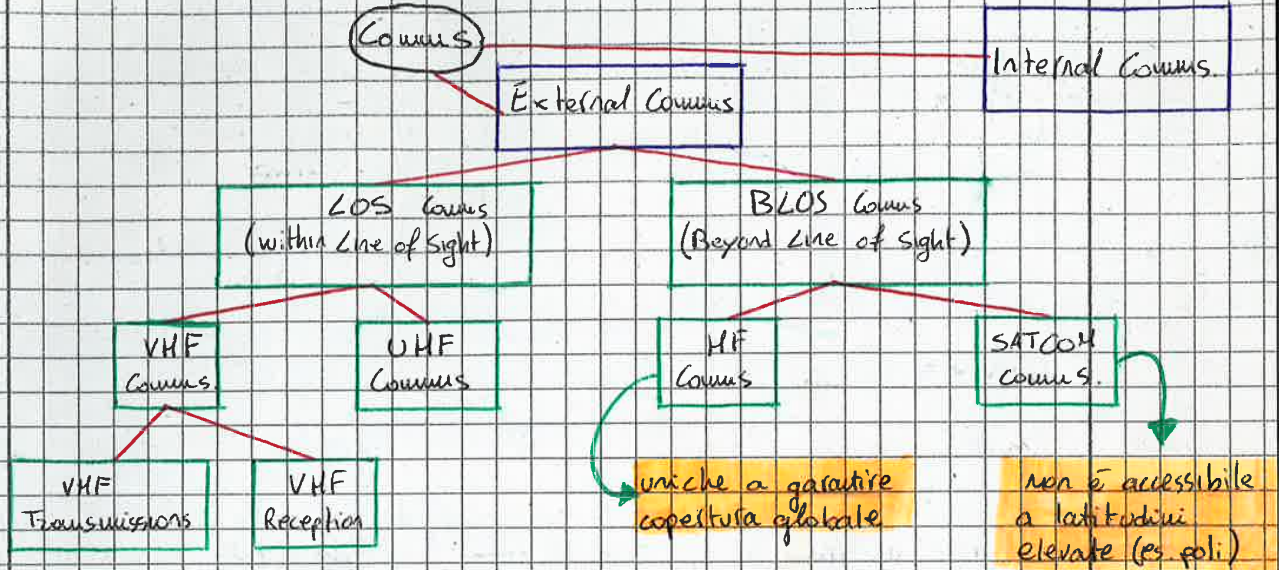 Comms
Internal Comms.
External Comms
LOS Comms
(within Line of Sight)
BLOS Comms
(Beyond Line of Sight)
VHF
Comms.
UHF
Comms
HF
Comms
SATCOM
comms.
VHF
Transmissions
VHF
Reception
uniche a garantire
copertura globale
non è accessibile
a latitudini
elevate (es. poli)